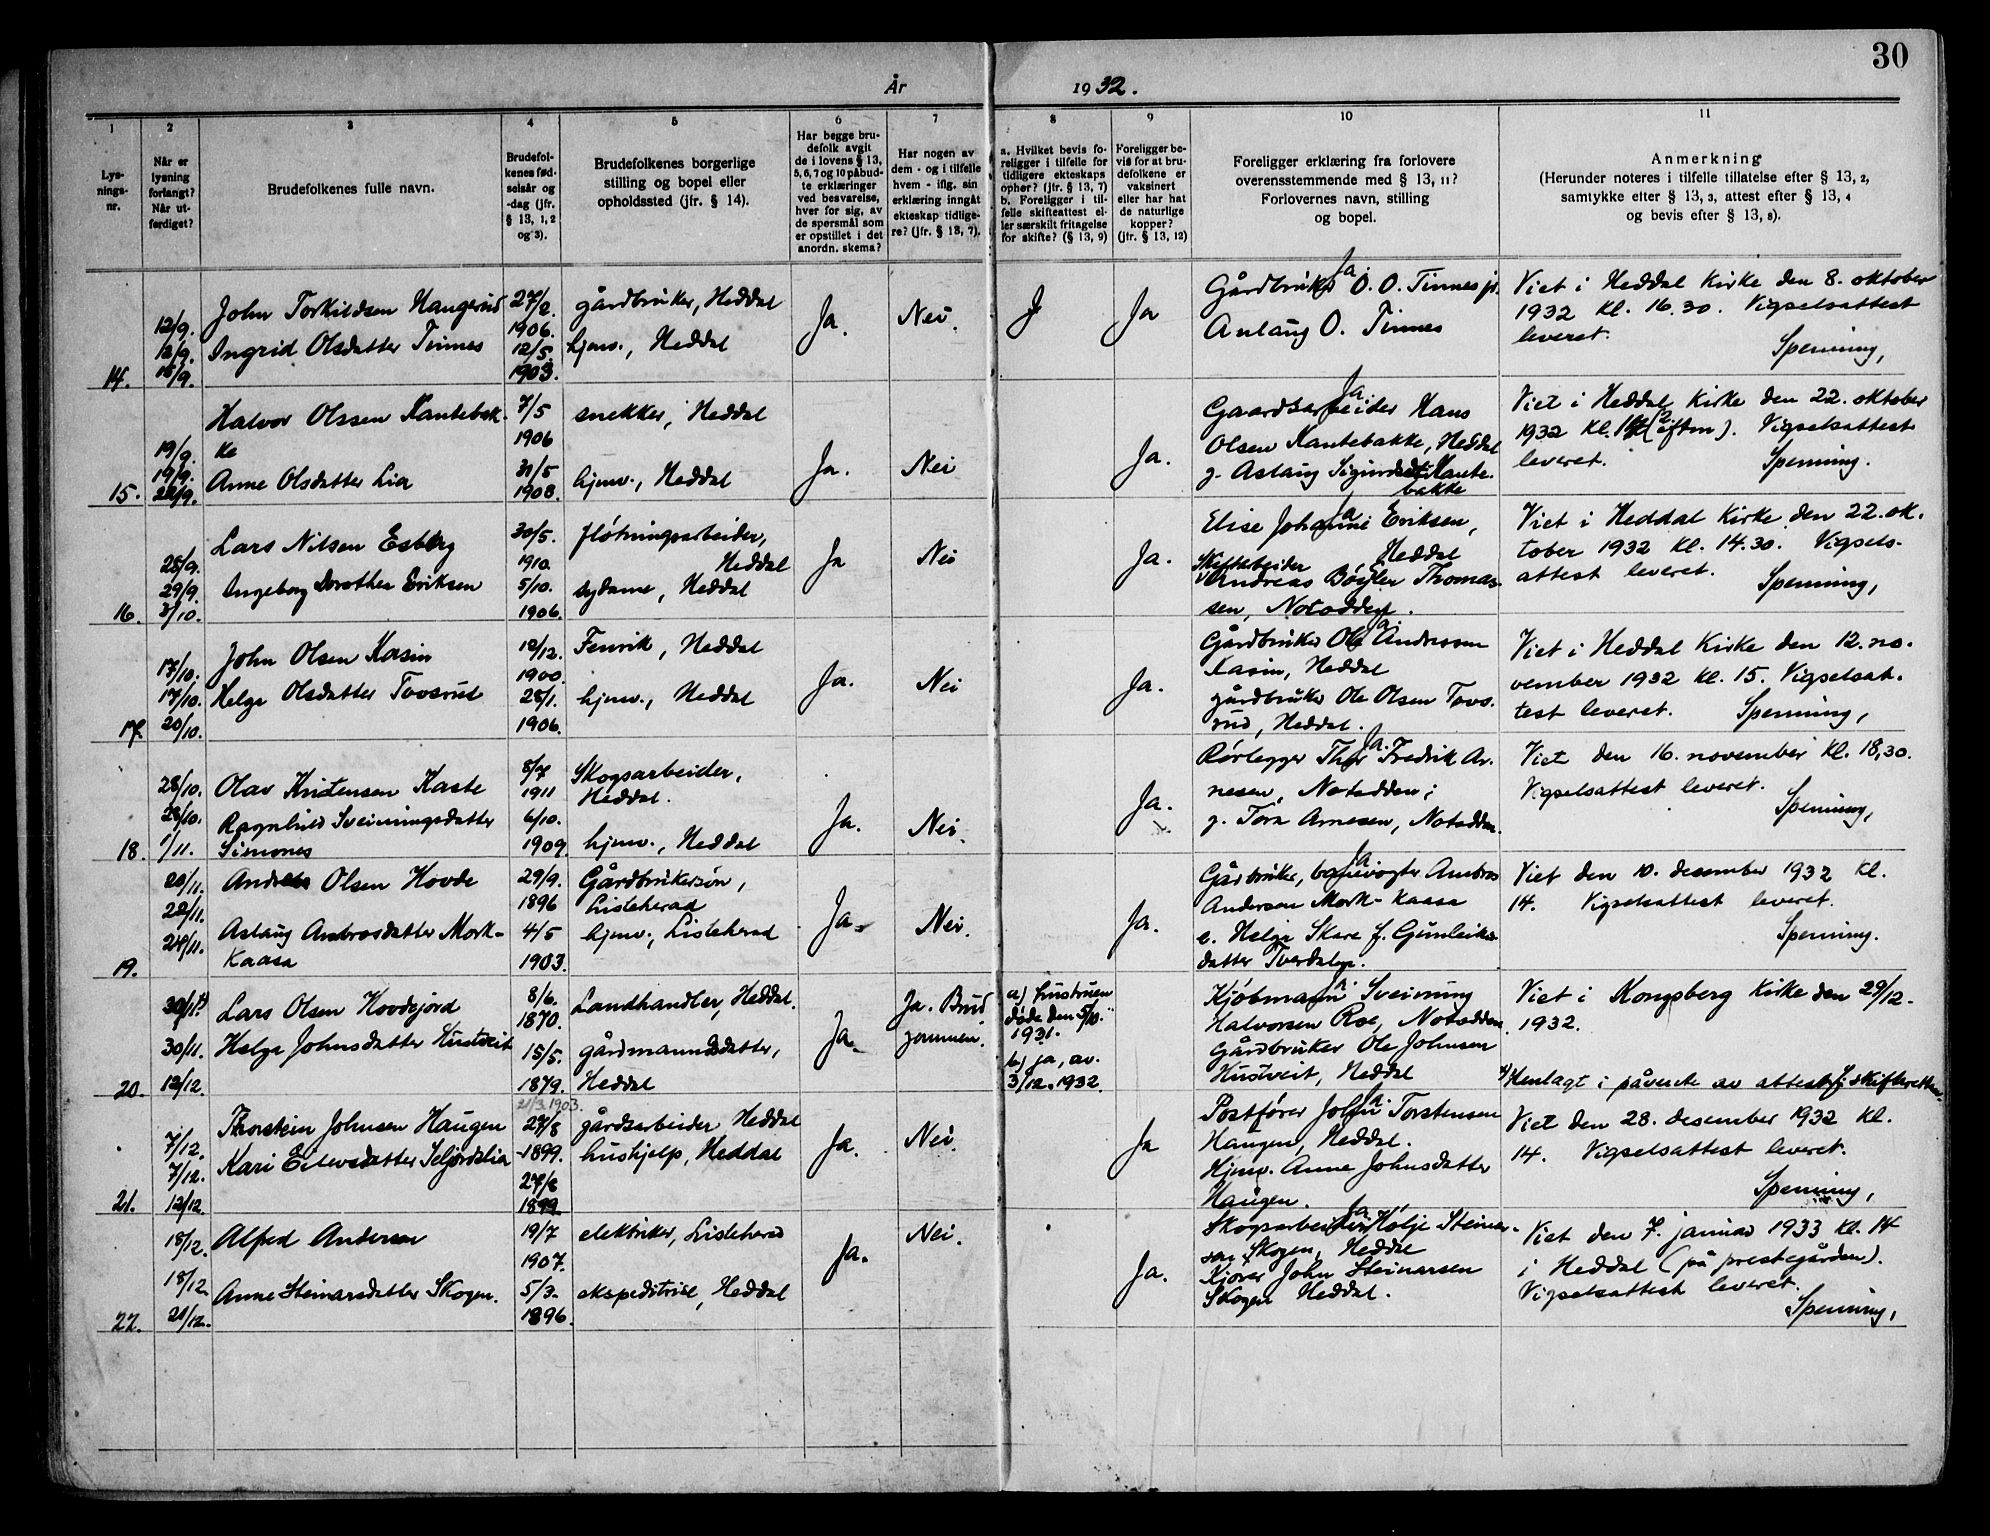 30
År 1932.
1 2 3 4 5 6 7 8 9 10 11
Lysningsnr.
Når er lysning forlangt? Når utferdiget?
Brudefolkenes fulle navn.
Brudefolkenes fødselsår og -dag (jfr. § 13, 1, 2 og 3).
Brudefolkenes borgerlige stilling og bopel eller opholdssted (jfr. § 14).
Har begge brudefolk avgit de i lovens § 13, 5, 6, 7 og 10 påbudte erklæringer ved besvarelse, hver for sig, av de spørsmål som er opstillet i det anordn. skema?
Har nogen av dem - og i tilfelle hvem - iflg. sin erklæring inngått ekteskap tidligere? (jfr. § 13, 7).
a. Hvilket bevis foreligger i tilfelle for tidligere ekteskaps ophør? (jfr. § 13, 7) b. Foreligger i tilfelle skifteattest eller særskilt fritagelse for skifte? (§ 13, 9)
Foreligger bevis for at brudefolkene er vaksinert eller har hat de naturlige kopper? (jfr. § 13, 12)
Foreligger erklæring fra forlovere overensstemmende med § 13, 11? Forlovernes navn, stilling og bopel.
Anmerkning (Herunder noteres i tilfelle tillatelse efter § 13, 2, samtykke efter § 13, 3, attest efter § 13, 4 og bevis efter § 13, 8).
14.
12/9. 12/9. 15/9.
John Torkildsen Haugerud
Ingrid Olsdatter Tinnes
27/2. 1906.
12/5. 1903.
gårdbruker, Heddal
hjemv., Heddal
Ja.
Nei.
Ja
Ja.
Gårdbruker O. O. Tinnes jr.
Aslaug O. Tinnes
Viet i Heddal Kirke den 8. oktober
1932 kl. 16.30. Vigselsattest
leveret.
Spenning,
15.
19/9. 19/9. 22/9.
Halvor Olssen Kantebak-
ke
Anne Olsdatter Lia
7/5 1906
31/5 1908.
snekker, Heddal
hjemv., Heddal
Ja.
Nei
Ja.
Ja
Gaardsarbeider Hans
Olsen Kantebakke, Heddal
g. Aslaug Sigurdsdt. Kante-
bakke
Viet i Heddal Kirke den 22. oktober
1932 kl. (eftm). Vigselsattest
leveret.
Spenning.
16.
28/9. 29/9. 3/10.
Lars Nilsen Esberg
Ingeborg Dorothea Eriksen
30/5. 1910.
5/10. 1906.
fløtningsarbeider,
Heddal
sydame, Heddal
Ja
Nei
Ja.
Ja
Elise Johanne Eriksen,
Heddal
Skiftarbeider
Andreas Bøgler Thomas-
sen, Notodden.
Viet i Heddal Kirke den 22. ok-
tober 1932 kl. 14.30. Vigsels-
attest leveret.
Spenning,
17.
17/10. 17/10. 20/10.
John Olsen Kasin
Helge Olsdatter Tovsrud
12/12. 1900.
28/1. 1906.
Fenrik, Heddal
hjemv., Heddal
Ja.
Nei
Ja.
Ja.
Gårdbruker Ole Andressen
Kasin, Heddal
gårdbruker Ole Olsen Tovs-
rud, Heddal.
Viet i Heddal Kirke den 12. no-
vember 1932 kl. 15. Vigselsat-
test leveret.
Spenning,
18.
28/10. 28/10. 1/11.
Olav Kristensen Kaste
Ragnhild Sveinungsdatter
Simones
8/7 1911
6/10. 1909.
Skogsarbeider,
Heddal.
hjemv., Heddal
Ja.
Nei.
Ja.
Ja.
Rørlegger Thor Fredrik Ar-
nesen, Notodden;
g. Tora Arnesen, Notodden.
Viet den 16. november kl. 18,30.
Vigselsattest leveret.
Spenning,
19.
20/11. 22/11. 24/11.
Andreas Olsen Hovde
Aslaug Ambrosdatter Mork-
Kaasa
29/9. 1896
4/5 1903.
Gårdbrukersøn,
Lisleherad
hjemv., Lisleherad
Ja.
Nei.
Ja.
Ja
Gårdbruker, banevogter Ambros
Andersen Mork-Kaasa
e. Helge Skare f. Gunleiks-
datter Tverdalen.
Viet den 10. desember 1932 kl.
14. Vigselsattest leveret.
Spenning.
20.
30/11.*) 30/11. 12/12.
Lars Olsen Hovdejord
Helge Johnsdatter Hustveit
8/6. 1870.
15/5. 1879.
Landhandler, Heddal.
gårdmannsdatter,
Heddal
Ja.
Ja. Brud-
gommen.
a) hustruen
døde den 5/10.
1931.
b) ja, av.
3/12. 1932.
Kjøbmann Sveinung
Halvorsen Roe, Notodden.
Gårdbruker Ole Johnsen
Hustveit, Heddal
Viet i Kongsberg Kirke den 29/12-
1932.
*) Henlagt i påvente av attest fra skifteretten.
21.
7/12. 7/12. 12/12.
Thorstein Johnsen Haugen
Kari Eilevsdatter Seljordslia
21/3. 1903.
27/8 1899.
27/8 1899
gårdsarbeider Heddal
hushjelp, Heddal
Ja.
Nei.
Ja
Ja.
Postfører John Torstensen
Haugen, Heddal.
Hjemv. Anne Johnsdatter
Haugen.
Viet den 28. desember 1932 kl.
14. Vigselsattest leveret.
Spenning,
22.
18/12. 18/12. 21/12.
Alfred Andersen
Anne Steinarsdatter Skogen.
19/7 1907.
5/3. 1896.
elektriker, Lisleherad
ekspeditrise, Heddal
Ja.
Nei.
Ja.
Ja
Skogsarbeider Hølje Steinar-
sen Skogen, Heddal
Kjører John Steinarsen
Skogen Heddal.
Viet den 7. januar 1933 kl. 14
i Heddal (på prestegården).
Vigselsattest leveret.
Spenning,